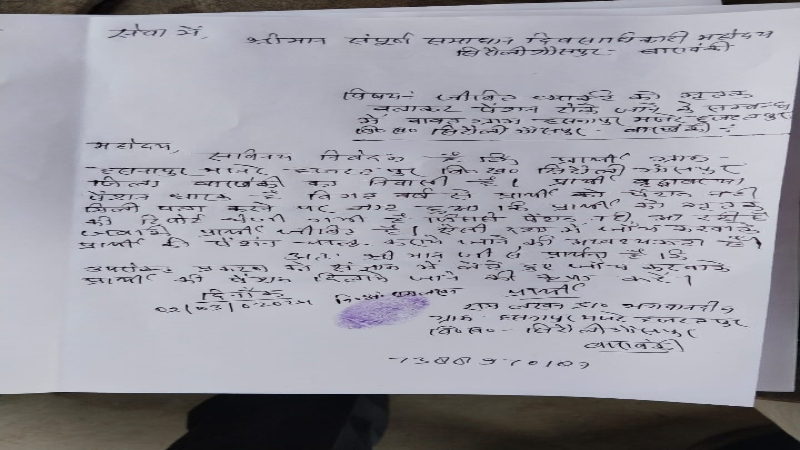 सेवा में,
श्रीमान संपूर्ण समाधान दिवसाधिकारी महोदय
सिरौलीगौसपुर - बाराबंकी
विषय:- जीवित व्यक्ति को मृतक
बताकर पेंशन रोके जाने के सम्बन्ध
में बावत ग्राम हसनापुर मजरे हजरतपुर
वि०ख० सिरौलीगौसपुर - बाराबंकी -:
महोदय,
सविनय निवेदन है कि प्रार्थी ग्राम-
हसनापुर मजरे - हजरतपुर वि० ख० सिरौलीगौसपुर
जिला बाराबंकी का निवासी है। प्रार्थी वृद्धावस्था
पेंशन धारक है विगत वर्ष से प्रार्थी को पेंशन नहीं
मिली पता करने पर ज्ञात हुआ कि प्रार्थी को मृतक
की रिपोर्ट भेजी गयी है जिससे पेंशन नहीं आ रही है
जबकि प्रार्थी जीवित है। ऐसी दशा में जाँच करवाके
प्रार्थी की पेंशन चालू कराये जाने की आवश्यकता है।
अतः श्रीमान जी से प्रार्थना है कि
उपरोक्त प्रकरण को संज्ञान में लेते हुए जाँच करवाके
प्रार्थी की पेंशन दिलाये जाने की कृपा करें।
दिनाँक
प्रार्थी
राम
ग्राम- हसनापुर मजरे हजरतपुर
वि०ख०- सिरौलीगौसपुर
बाराबंकी